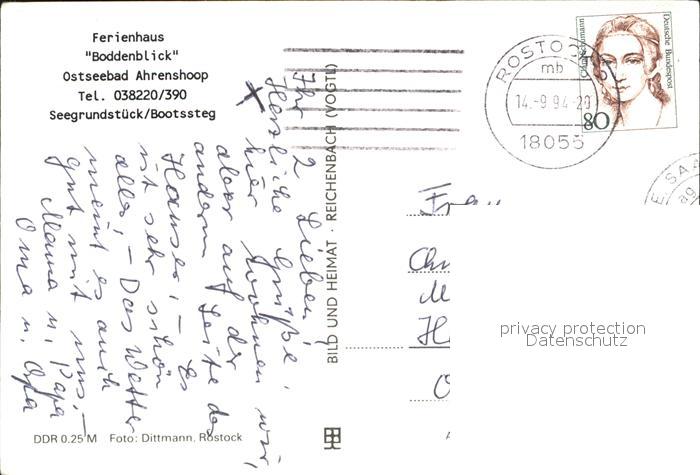 Ferienhaus
"Boddenblick"
Ostseebad Ahrenshoop
Tel. 038220/390
Seegrundstück/Bootssteg
Ihr 2 Lieben!
Herzliche Grüße,
hier wohnen wir,
aber auf der
anderen Seite des
Hauses, – Es
ist sehr schön
alles, – Das Wetter
meint es auch
gut mit uns, –
Mama u. Papa
Oma u. Opa
BILD UND HEIMAT · REICHENBACH (VOGTL)
DDR 0.25 M Foto: Dittmann, Rostock
ROSTOCK
mb
14.-9.94-20
18055
Clara Schumann
Deutsche Bundespost
80
Frau
privacy protection
Datenschutz